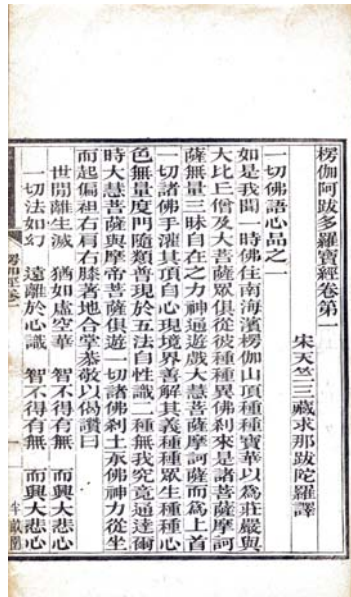 楞伽阿跋多羅寶經卷第一
宋天竺三藏求那跋陀羅譯
一切佛語心品之一
如是我聞一時佛住南海濱楞伽山頂種種寶華以為莊嚴與
大比丘僧及大菩薩眾俱從彼種種異佛剎來是諸菩薩摩訶
薩無量三昧自在之力神通遊戲大慧菩薩摩訶薩而為上首
一切諸佛手灌其頂自心現境界善解其義種種眾生種種心
色無量度門隨類普現於五法自性識二種無我究竟通達爾
時大慧菩薩與摩帝菩薩俱遊一切諸佛剎土承佛神力從坐
而起偏袒右肩右膝著地合掌恭敬以偈讚曰
世間離生滅 猶如虛空華 智不得有無 而興大悲心
一切法如幻 遠離於心識 智不得有無 而興大悲心